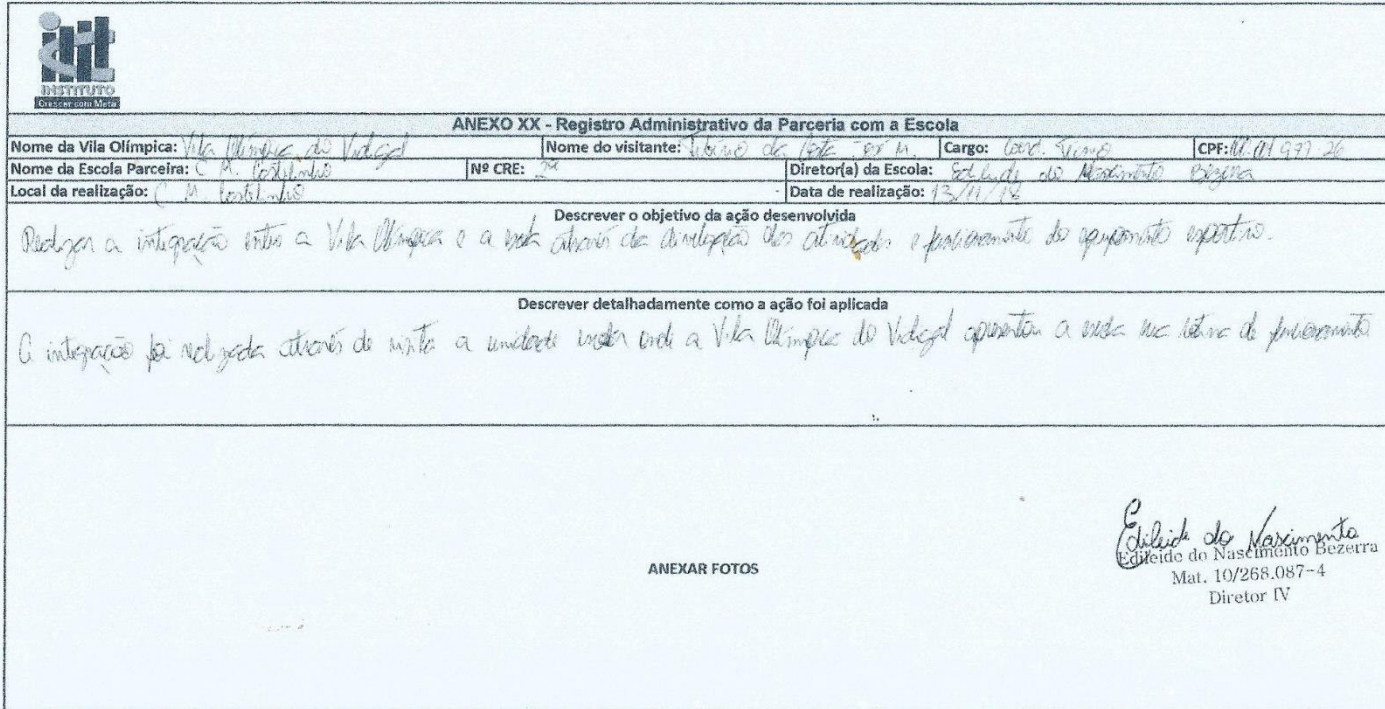 INSTITUTO
Crescer com Meta
ANEXO XX - Registro Administrativo da Parceria com a Escola
Nome da Vila Olímpica: Vila Olímpica do Vidigal Nome do visitante: da Costa Cargo: Coord. CPF:
Nome da Escola Parceira: C. M. Nº CRE: 2ª Diretor(a) da Escola: do Nascimento Bezerra
Local da realização: C. M. Data de realização: 13/11/18
Descrever o objetivo da ação desenvolvida
Realizar a integração entre a Vila Olímpica e a escola através da divulgação das atividades e funcionamento do equipamento esportivo.
Descrever detalhadamente como a ação foi aplicada
A integração foi realizada através de visita a unidade escolar onde a Vila Olímpica do Vidigal apresentou a escola sua rotina de funcionamento
ANEXAR FOTOS
Edileide do Nascimento
Edileide do Nascimento Bezerra
Mat. 10/268.087-4
Diretor IV